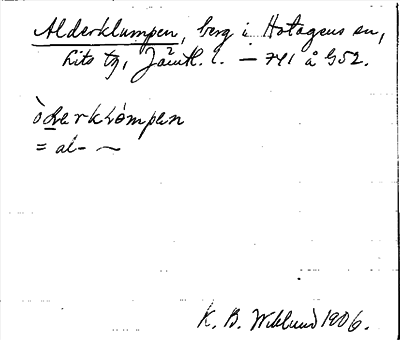 Alderklumpen, berg i Hotagens sn,
Lits tg, Jämtl. l. — 741 å G52.
òldərklómpen
= al- ~
K. B. Wiklund 1906.